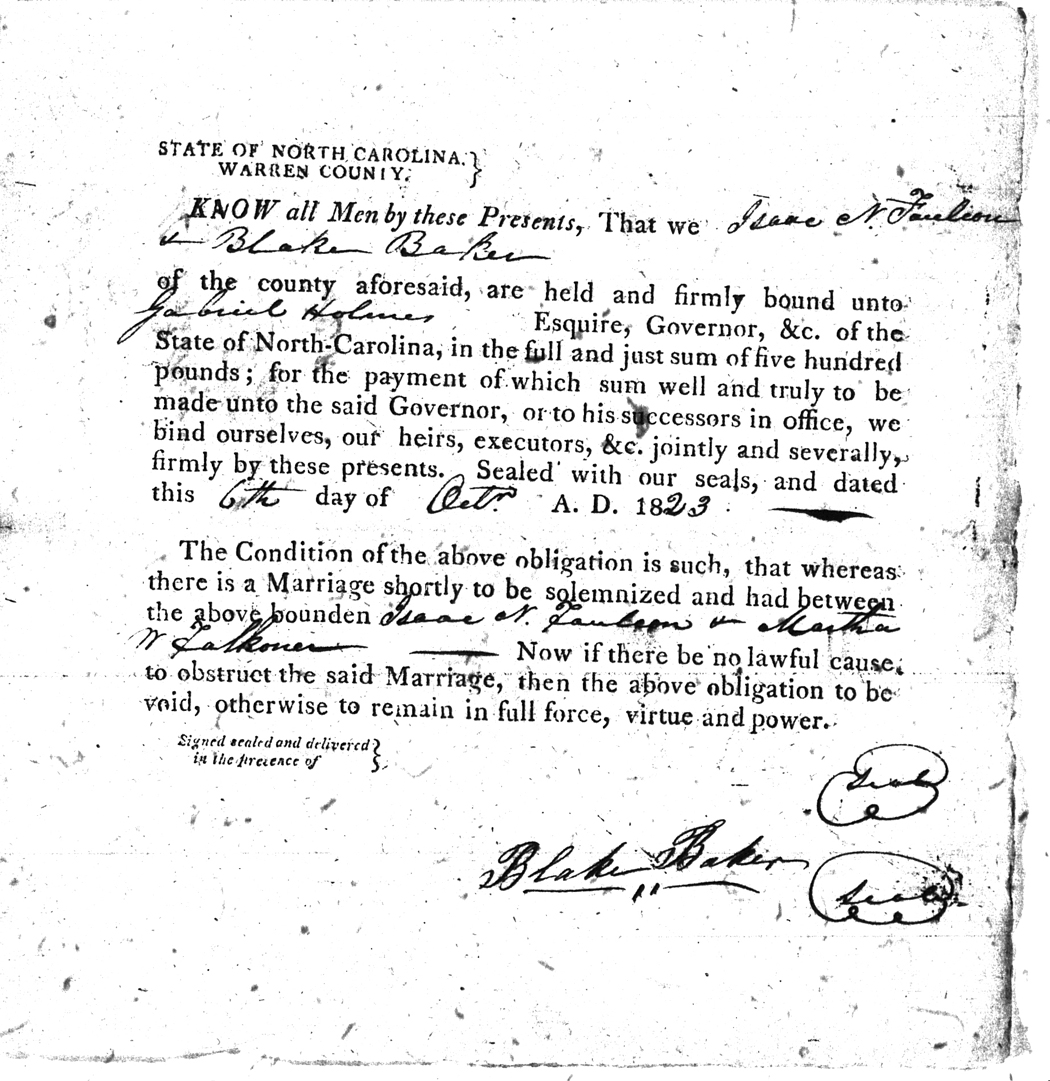 STATE OF NORTH CAROLINA. }
WARREN COUNTY. }
KNOW all Men by these Presents, That we Isaac N. Faulcon
& Blake Baker
of the county aforesaid, are held and firmly bound unto
Gabriel Holmes Esquire, Governor, &c. of the
State of North-Carolina, in the full and just sum of five hundred
pounds; for the payment of which sum well and truly to be
made unto the said Governor, or to his successors in office, we
bind ourselves, our heirs, executors, &c. jointly and severally,
firmly by these presents. Sealed with our seals, and dated
this 6th day of Octr. A. D. 1823
The Condition of the above obligation is such, that whereas
there is a Marriage shortly to be solemnized and had between
the above bounden Isaac N. Faulcon & Martha
W Falkoner Now if there be no lawful cause,
to obstruct the said Marriage, then the above obligation to be
void, otherwise to remain in full force, virtue and power.
Signed sealed and delivered }
in the presence of }
Seal
Blake Baker Seal